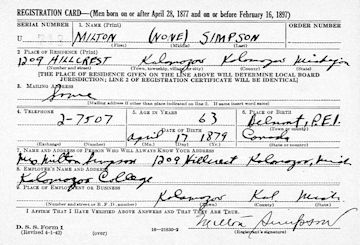 REGISTRATION CARD—(Men born on or after April 28, 1877 and on or before February 16, 1897)
SERIAL NUMBER 1. NAME (Print) ORDER NUMBER
U MILTON (NONE) SIMPSON
(First) (Middle) (Last)
2. PLACE OF RESIDENCE (Print)
1209 HILLCREST Kalamazoo Kalamazoo Michigan
(Number and street) (Town, township, village, or city) (County) (State)
[THE PLACE OF RESIDENCE GIVEN ON THE LINE ABOVE WILL DETERMINE LOCAL BOARD
JURISDICTION; LINE 2 OF REGISTRATION CERTIFICATE WILL BE IDENTICAL]
3. MAILING ADDRESS
Same
[Mailing address if other than place indicated on line 2. If same insert word same]
4. TELEPHONE 5. AGE IN YEARS 6. PLACE OF BIRTH
63 Belmont, P.E.I.
2-7507 DATE OF BIRTH (Town or county)
April 17 1879 Canada
(Exchange) (Number) (Mo.) (Day) (Yr.) (State or country)
7. NAME AND ADDRESS OF PERSON WHO WILL ALWAYS KNOW YOUR ADDRESS
Mrs Milton Simpson 1209 Hillcrest Kalamazoo, Mich
8. EMPLOYER'S NAME AND ADDRESS
Kalamazoo College
9. PLACE OF EMPLOYMENT OR BUSINESS
Kalamazoo Kal Mich
(Number and street or R. F. D. number) (Town) (County) (State)
I AFFIRM THAT I HAVE VERIFIED ABOVE ANSWERS AND THAT THEY ARE TRUE.
D. S. S. Form 1
(Revised 4-1-42) (over) 16-21630-2 Milton Simpson
(Registrant's signature)